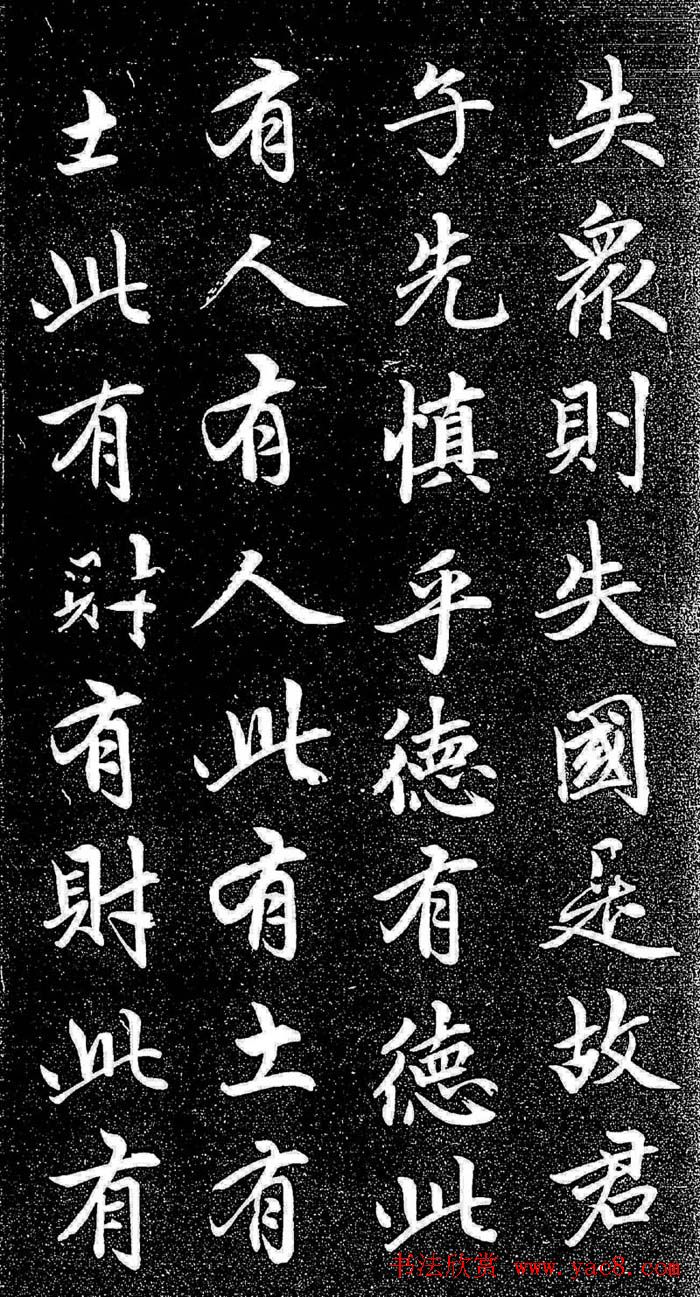 失衆則失國是故君
子先慎乎德有德此
有人有人此有土有
土此有財有財此有
书法欣赏 www.yac8.com